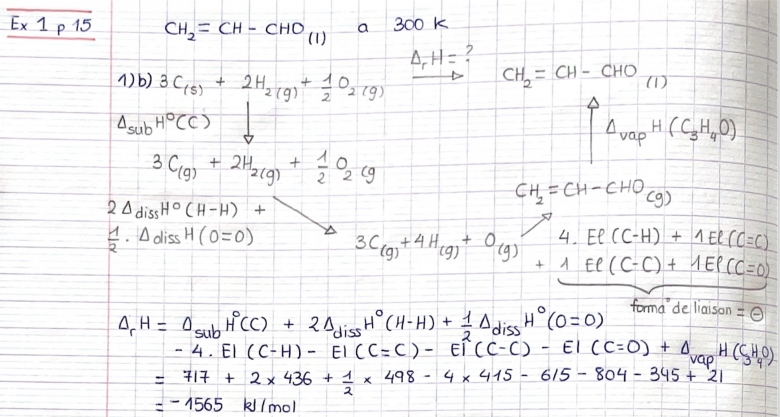 Ex 1 p 15
CH₂ = CH - CHO (l) a 300 K
1)b) 3 C(s) + 2H₂(g) + 1/2 O₂(g) ΔrH = ? CH₂ = CH - CHO (l)
ΔsubH°(C)
3 C(g) + 2H₂(g) + 1/2 O₂(g
ΔvapH(C₃H₄O)
CH₂ = CH - CHO(g)
2 ΔdissH°(H-H) +
1/2 . ΔdissH(O=O)
3C(g) + 4H(g) + O(g)
4. El(C-H) + 1El(C=C)
+ 1 El(C-C) + 1El(C=O)
forma° de liaison = ⊖
ΔrH = ΔsubH°(C) + 2ΔdissH°(H-H) + 1/2 ΔdissH°(O=O)
- 4. El(C-H) - El(C=C) - El(C-C) - El(C=O) + ΔvapH(C₃H₄O)
= 717 + 2 x 436 + 1/2 x 498 - 4 x 415 - 615 - 804 - 345 + 21
= - 1565 kJ/mol